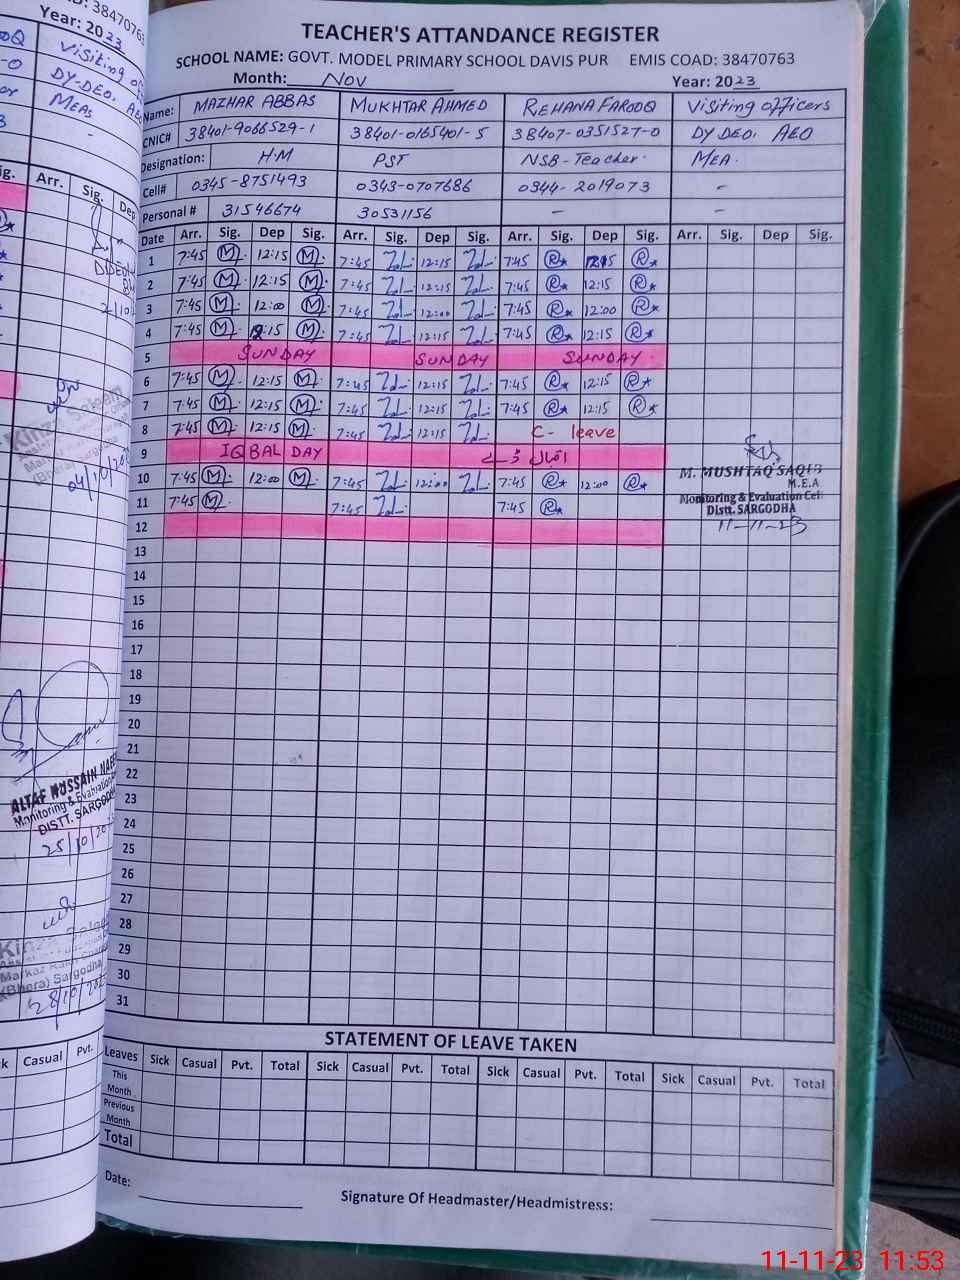 TEACHER'S ATTANDANCE REGISTER
SCHOOL NAME: GOVT. MODEL PRIMARY SCHOOL DAVIS PUR EMIS COAD: 38470763
Month: Nov Year: 2023
Name: MAZHAR ABBAS MUKHTAR AHMED REHANA FAROOQ Visiting officers
CNIC# 38401-9066529-1 38401-0165401-5 38407-0351527-0 DY DEO, AEO
Designation: H.M PST NSB-Teacher. MEA.
Cell# 0345-8751493 0343-0707686 0344-2019073 -
Personal # 31546674 30531156 - -
Date Arr. Sig. Dep Sig. Arr. Sig. Dep Sig. Arr. Sig. Dep Sig. Arr. Sig. Dep Sig.
1 7:45 M 12:15 M 7:45 12:15 7:45 R 12:15 R
2 7:45 M 12:15 M 7:45 12:15 7:45 R 12:15 R
3 7:45 M 12:00 M 7:45 12:00 7:45 R 12:00 R
4 7:45 M 12:15 M 7:45 12:15 7:45 R 12:15 R
5 SUNDAY SUNDAY SUNDAY
6 7:45 M 12:15 M 7:45 12:15 7:45 R 12:15 R
7 7:45 M 12:15 M 7:45 12:15 7:45 R 12:15 R
8 7:45 M 12:15 M 7:45 12:15 C- leave
9 IQBAL DAY اقبال ڈے
10 7:45 M 12:00 M 7:45 12:00 7:45 R 12:00 R
11 7:45 M 7:45 7:45 R
M. MUSHTAQ SAQIB
M.E.A
Monitoring & Evaluation Cell
Distt. SARGODHA
11-11-23
12
13
14
15
16
17
18
19
20
21
22
23
24
25
26
27
28
29
30
31
STATEMENT OF LEAVE TAKEN
Leaves Sick Casual Pvt. Total Sick Casual Pvt. Total Sick Casual Pvt. Total Sick Casual Pvt. Total
This Month
Previous Month
Total
Date:
Signature Of Headmaster/Headmistress:
38470763
Year: 2023
Visiting
DY-DEO, AEO
MEAs
Arr. Sig. Dep
04/10/20
ALTAF HUSSAIN
Monitoring & Evaluation
DISTT. SARGODHA
25/10/20
(Bhera) Sargodha
28/10/20
Casual Pvt.
11-11-23 11:53